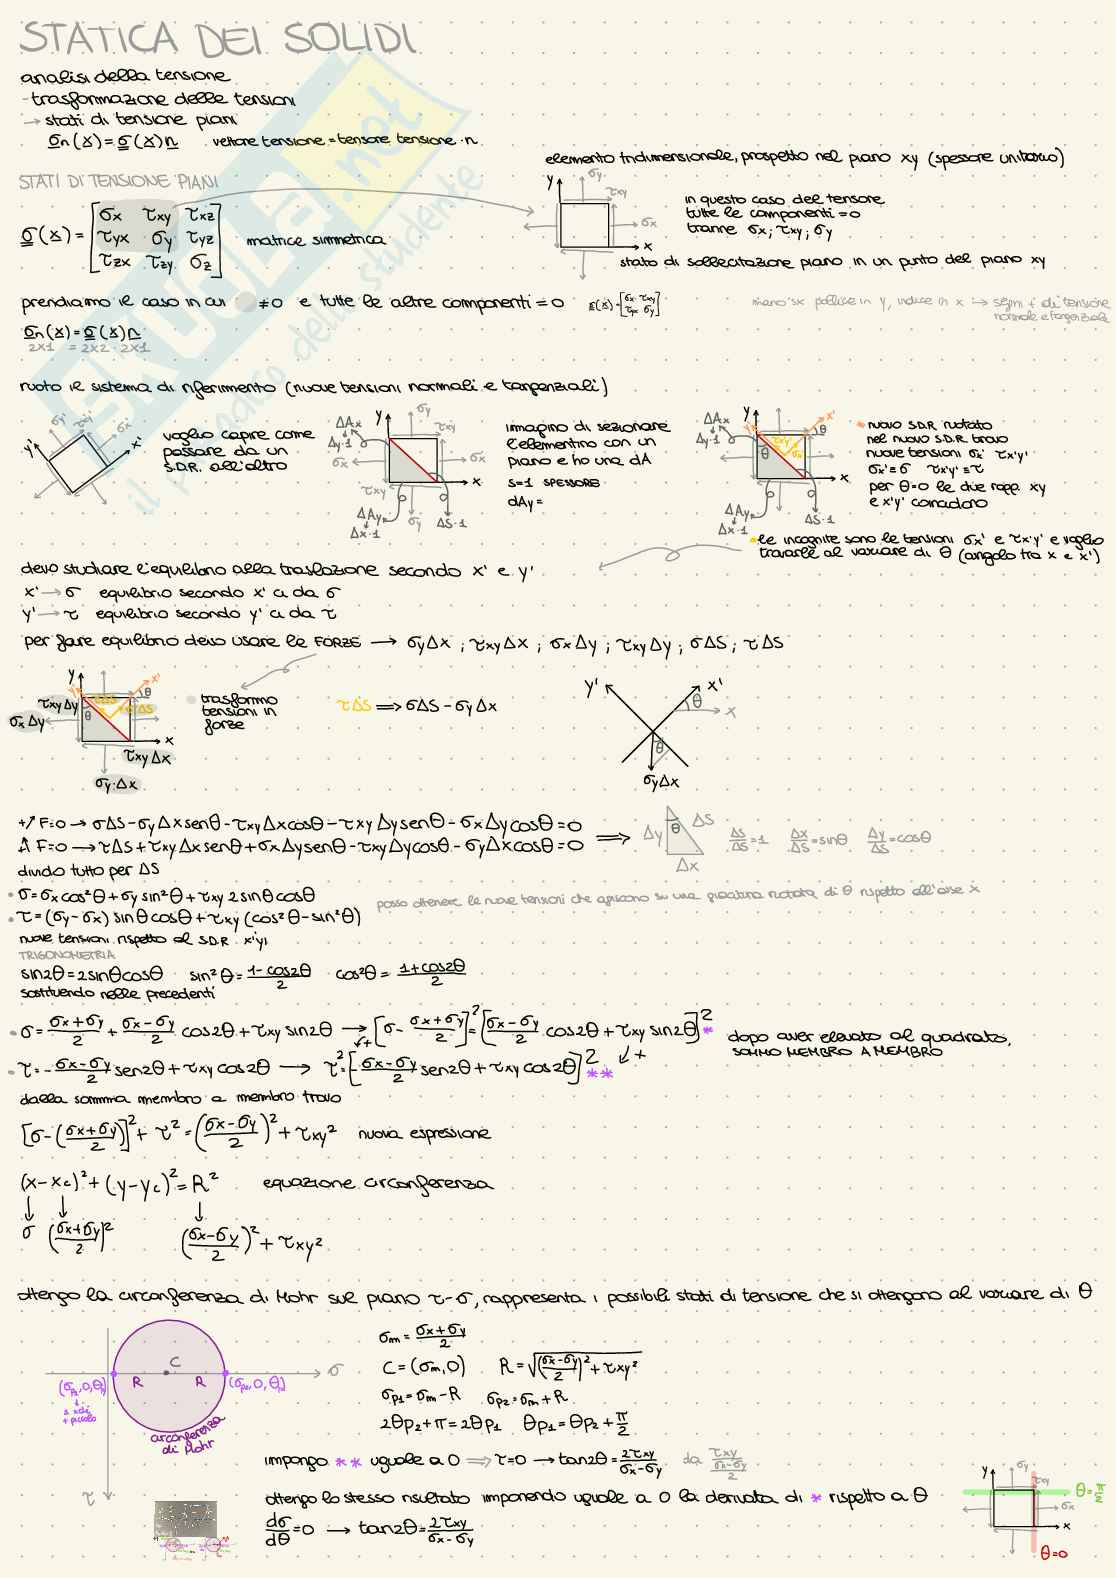 STATICA DEI SOLIDI
analisi della tensione
-trasformazione delle tensioni
→ stati di tensione piani
σn(x)=σ(x)n vettore tensione = tensore tensione · n
elemento tridimensionale, prospetto nel piano xy (spessore unitario)
STATI DI TENSIONE PIANI
σ(x) = [σx τxy τxz
τyx σy τyz
τzx τzy σz] matrice simmetrica
y σy τxy σx x
in questo caso del tensore
tutte le componenti =0
tranne σx; τxy; σy
stato di sollecitazione piano in un punto del piano xy
prendiamo il caso in cui ≠0 e tutte le altre componenti = 0 σ(x)=[σx τxy
τyx σy]
mano sx pollice in y, indice in x → segni + di tensione
normale e tangenziale
σn(x)=σ(x)n
2x1 = 2x2 · 2x1
ruoto il sistema di riferimento (nuove tensioni normali e tangenziali)
y' σy' τxy' σx' x'
voglio capire come
passare da un
S.D.R. all'altro
ΔAx
Δy·1
y σy τxy
σx σx x
τxy σy
ΔAy
Δx·1
ΔS·1
immagino di sezionare
l'elementino con un
piano e ho una dA
s=1 SPESSORE
dAy=
ΔAx
Δy·1
y x' θ
θ x
ΔAy
Δx·1
ΔS·1
nuovo S.D.R. ruotato
nel nuovo S.D.R. trovo
nuove tensioni σx' τx'y'
σx'=σ τx'y'=τ
per θ=0 le due rapp. xy
e x'y' coincidono
le incognite sono le tensioni σx' e τx'y' e voglio
trovarle al variare di θ (angolo tra x e x')
devo studiare l'equilibrio alla traslazione secondo x' e y'
x' → σ equilibrio secondo x' ci da σ
y' → τ equilibrio secondo y' ci da τ
per fare equilibrio devo usare le FORZE → σyΔx ; τxyΔx ; σxΔy ; τxyΔy ; σΔS ; τΔS
y x' θ
τxyΔy τΔS σΔS
θ
σxΔy x
τxyΔx
σy·Δx
trasformo
tensioni in
forze
τΔS ⟹ σΔS - σyΔx
y' x'
θ x
θ
σyΔx
+↗ F=0 → σΔS-σyΔxsenθ-τxyΔxcosθ-τxyΔysenθ-σxΔycosθ=0
F=0 → τΔS+τxyΔxsenθ+σxΔysenθ-τxyΔycosθ-σyΔxcosθ=0
⟹ Δy θ ΔS Δx ΔS/ΔS=1 Δx/ΔS=sinθ Δy/ΔS=cosθ
divido tutto per ΔS
• σ=σxcos²θ+σysin²θ+τxy2sinθcosθ
• τ=(σy-σx)sinθcosθ+τxy(cos²θ-sin²θ)
posso ottenere le nuove tensioni che agiscono su una giacitura ruotata di θ rispetto all'asse x
nuove tensioni rispetto al S.D.R. x'y'
TRIGONOMETRIA
sin2θ=2sinθcosθ sin²θ=(1-cos2θ)/2 cos²θ=(1+cos2θ)/2
sostituendo nelle precedenti
• σ=(σx+σy)/2+(σx-σy)/2 cos2θ+τxysin2θ → [σ-(σx+σy)/2]²=[(σx-σy)/2 cos2θ+τxysin2θ]² *
• τ=-(σx-σy)/2 sen2θ+τxycos2θ → τ²=[-(σx-σy)/2 sen2θ+τxycos2θ]² **
dopo aver elevato al quadrato,
SOMMO MEMBRO A MEMBRO
dalla somma membro a membro trovo
[σ-((σx+σy)/2)]²+τ²=((σx-σy)/2)²+τxy² nuova espressione
(x-xc)²+(y-yc)²=R² equazione circonferenza
σ ((σx+σy)/2)² ((σx-σy)/2)²+τxy²
ottengo la circonferenza di Mohr sul piano τ-σ, rappresenta i possibili stati di tensione che si ottengono al variare di θ
C
R R
σ
(σp1,0,θp1)
+ piccolo
(σp2,0,θp2)
circonferenza
di Mohr
τ
σm=(σx+σy)/2
C=(σm,0) R=√(((σx-σy)/2)²+τxy²)
σp1=σm-R σp2=σm+R
2θp2+π=2θp1 θp1=θp2+π/2
impongo ** uguale a 0 ⟹ τ=0 → tan2θ=2τxy/(σx-σy) da τxy/((σx-σy)/2)
ottengo lo stesso risultato imponendo uguale a 0 la derivata di * rispetto a θ
dσ/dθ=0 → tan2θ=2τxy/(σx-σy)
y σy τxy σx x
θ=π/2
θ=0